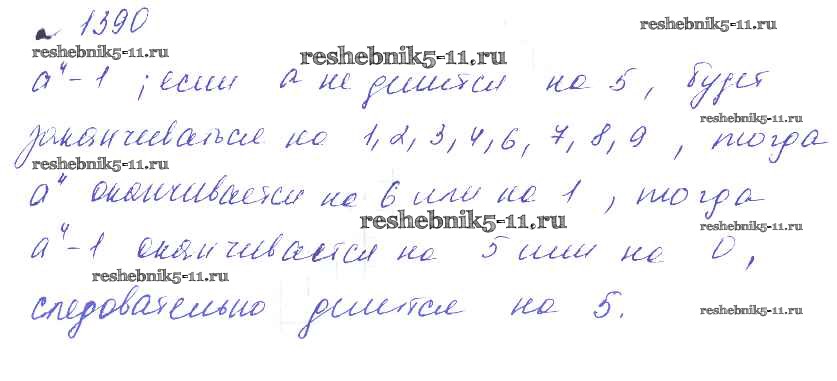 1390
reshebnik5-11.ru
reshebnik5-11.ru reshebnik5-11.ru
a⁴-1 ; если a не делится на 5, будет
reshebnik5-11.ru
заканчиваться на 1, 2, 3, 4, 6, 7, 8, 9, тогда
reshebnik5-11.ru
a⁴ оканчивается на 6 или на 1, тогда
reshebnik5-11.ru reshebnik5-11.ru
a⁴-1 оканчивается на 5 или на 0,
reshebnik5-11.ru
следовательно делится на 5.
reshebnik5-11.ru